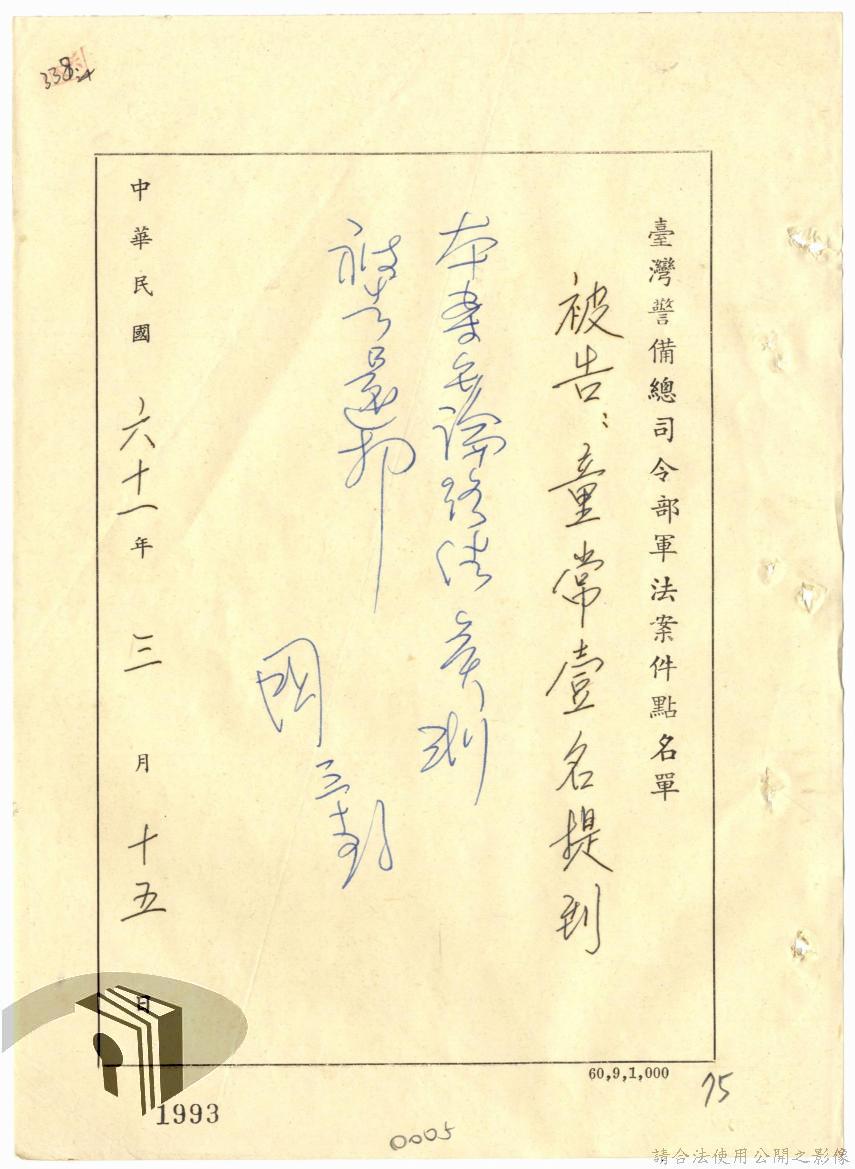 338
臺灣警備總司令部軍法案件點名單
被告：童常壹名提到
本案言論終結 實到
被告還押
國
三
中華民國六十一年三月十五日
60,9,1,000
75
1993
0005
請合法使用公開之影像